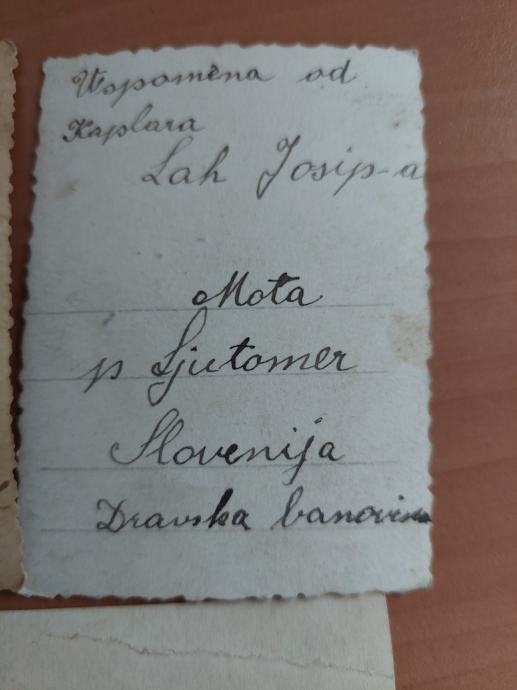 Uspomena od
Kaplara
Lah Josip-a
Mota
p Ljutomer
Slovenija
Dravska banovina